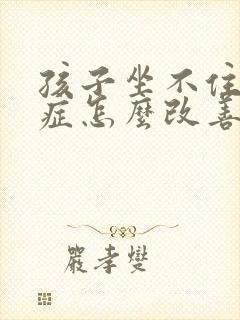 孩子坐不住
症怎麼改善
嚴孝燮